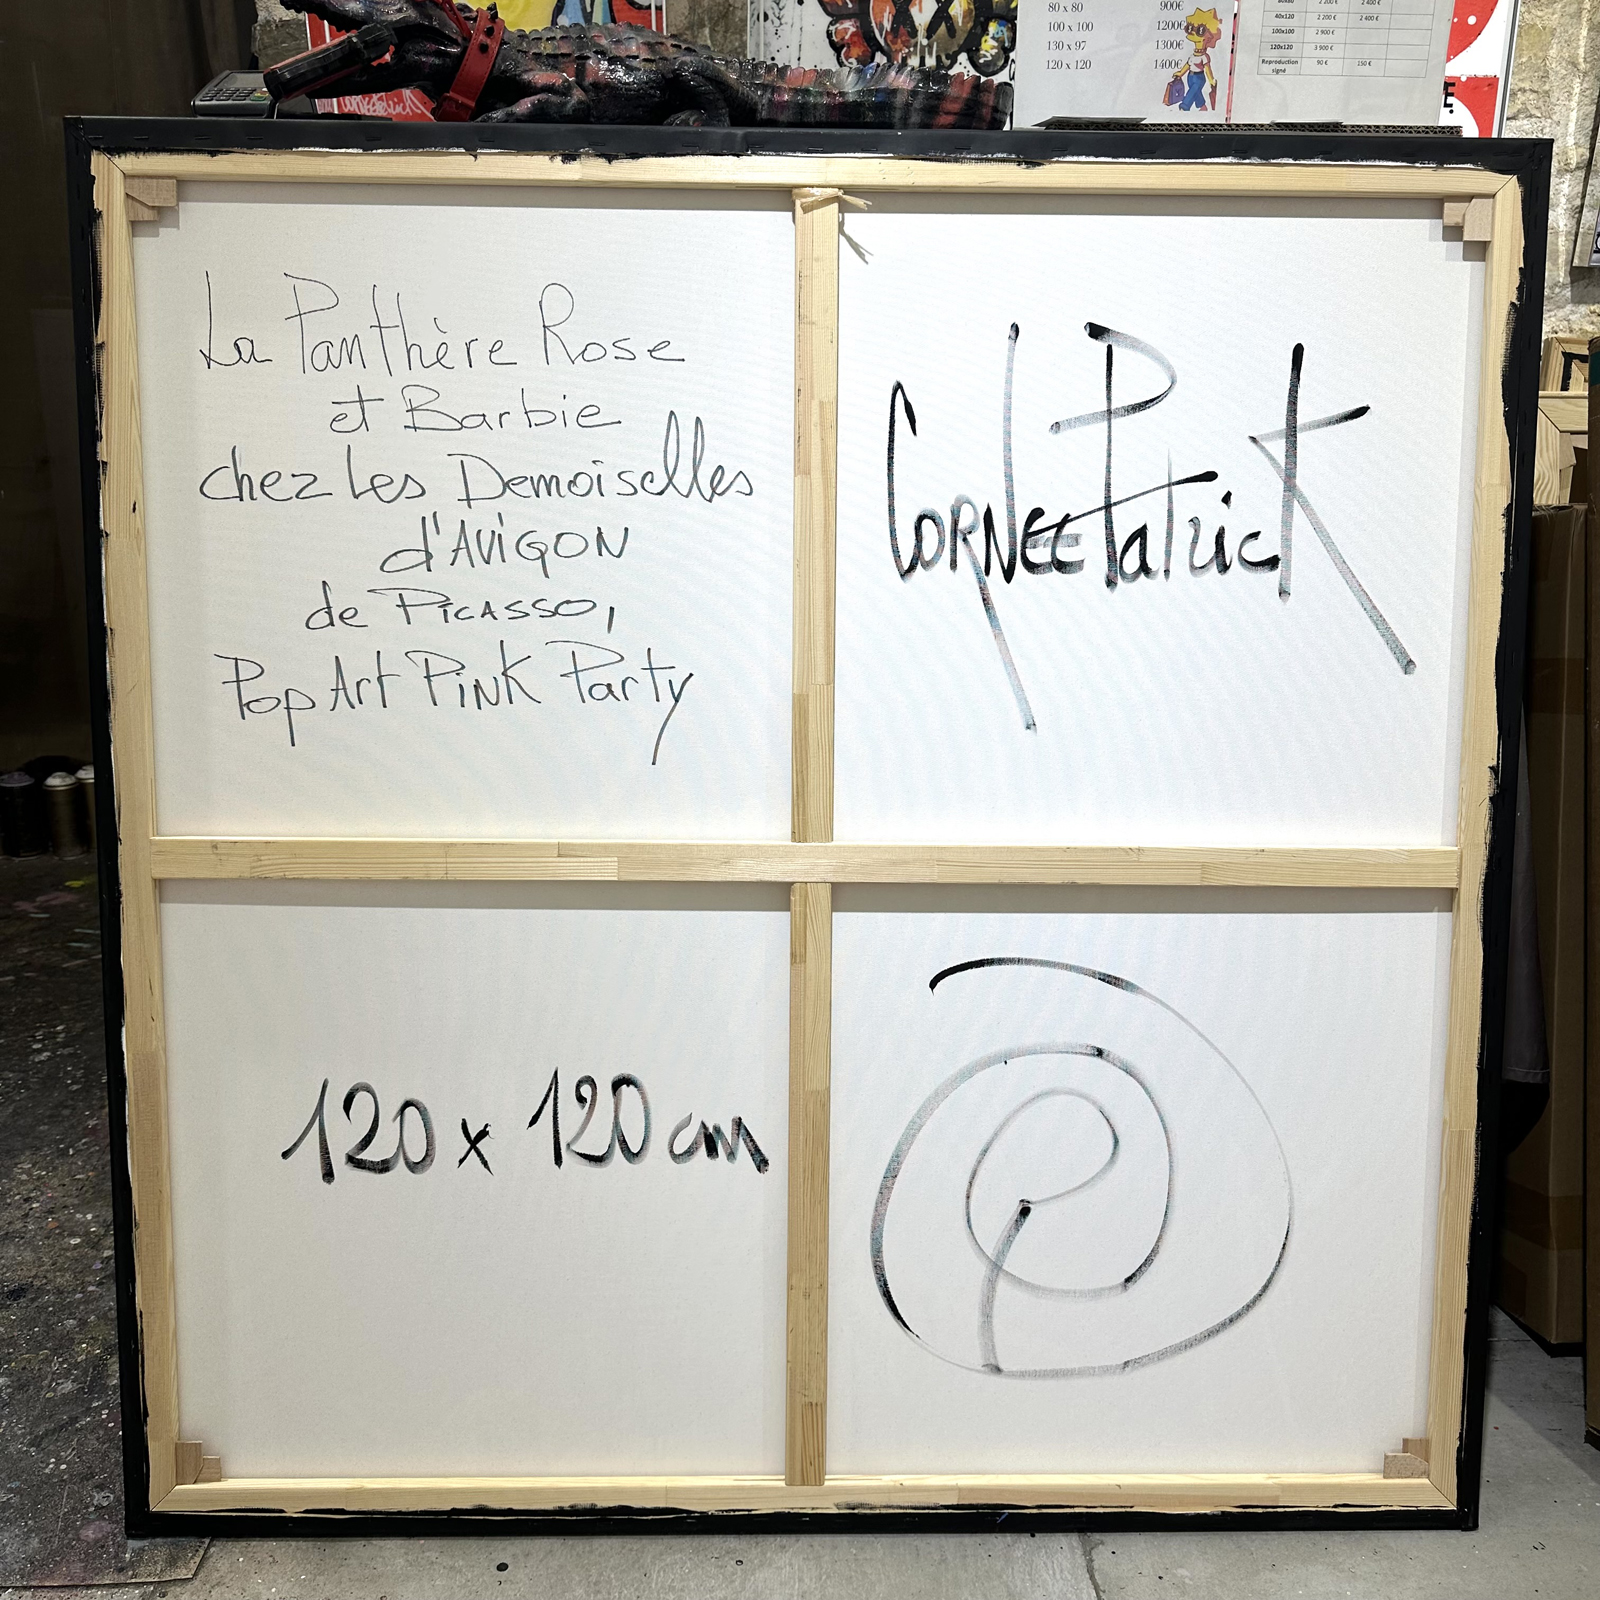 80 x 80 900€
100 x 100 1200€
130 x 97 1300€
120 x 120 1400€
80x80 2 200 € 2 400 €
40x120 2 200 € 2 400 €
100x100 2 900 €
120x120 3 900 €
Reproduction signé 90 € 150 €
La Panthère Rose
et Barbie
chez Les Demoiselles
d'AVIGON
de PICASSO,
Pop Art PINK Party
CORNEE Patrick
120 x 120 cm